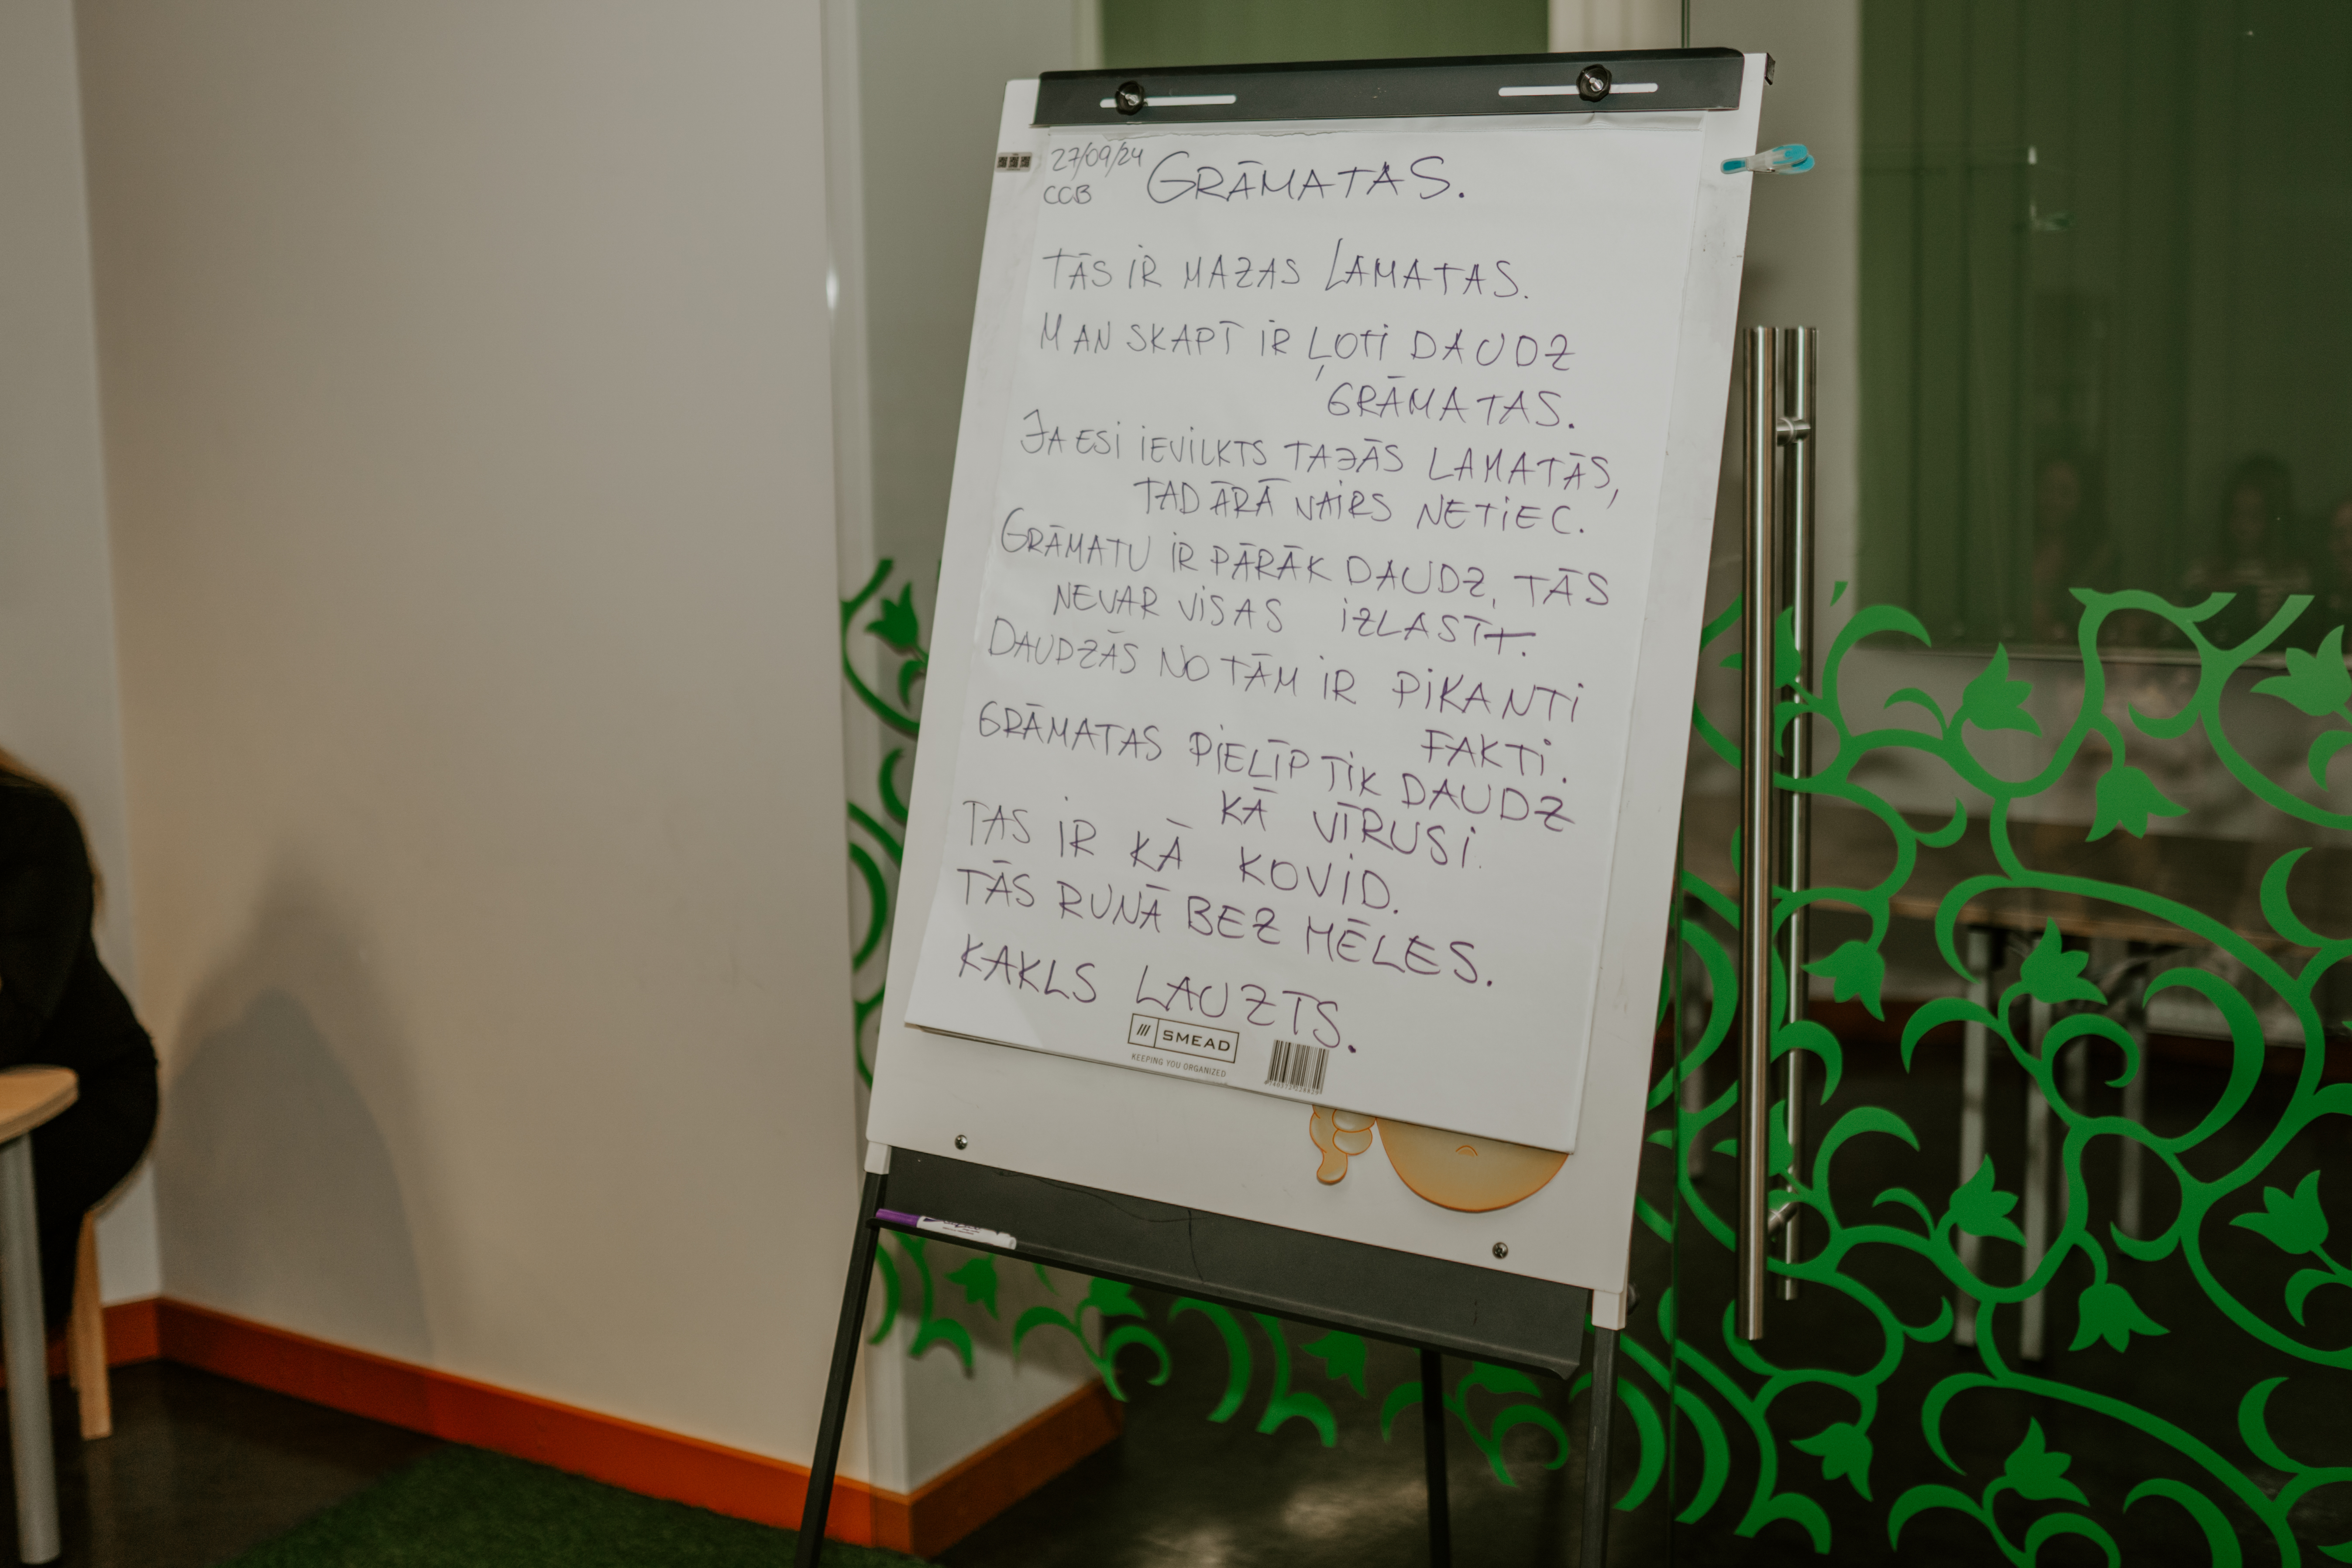 27/09/24
CCB
GRĀMATAS.
TĀS IR MAZAS LAMATAS.
MAN SKAPĪ IR ĻOTI DAUDZ
GRĀMATAS.
JA ESI IEVILKTS TAJĀS LAMATĀS,
TAD ĀRĀ VAIRS NETIEC.
GRĀMATU IR PĀRĀK DAUDZ, TĀS
NEVAR VISAS IZLASĪT.
DAUDZĀS NO TĀM IR PIKANTI
FAKTI.
GRĀMATAS PIELĪP TIK DAUDZ
KĀ VĪRUSI.
TAS IR KĀ KOVID.
TĀS RUNĀ BEZ MĒLES.
KAKLS LAUZTS.
SMEAD
KEEPING YOU ORGANIZED